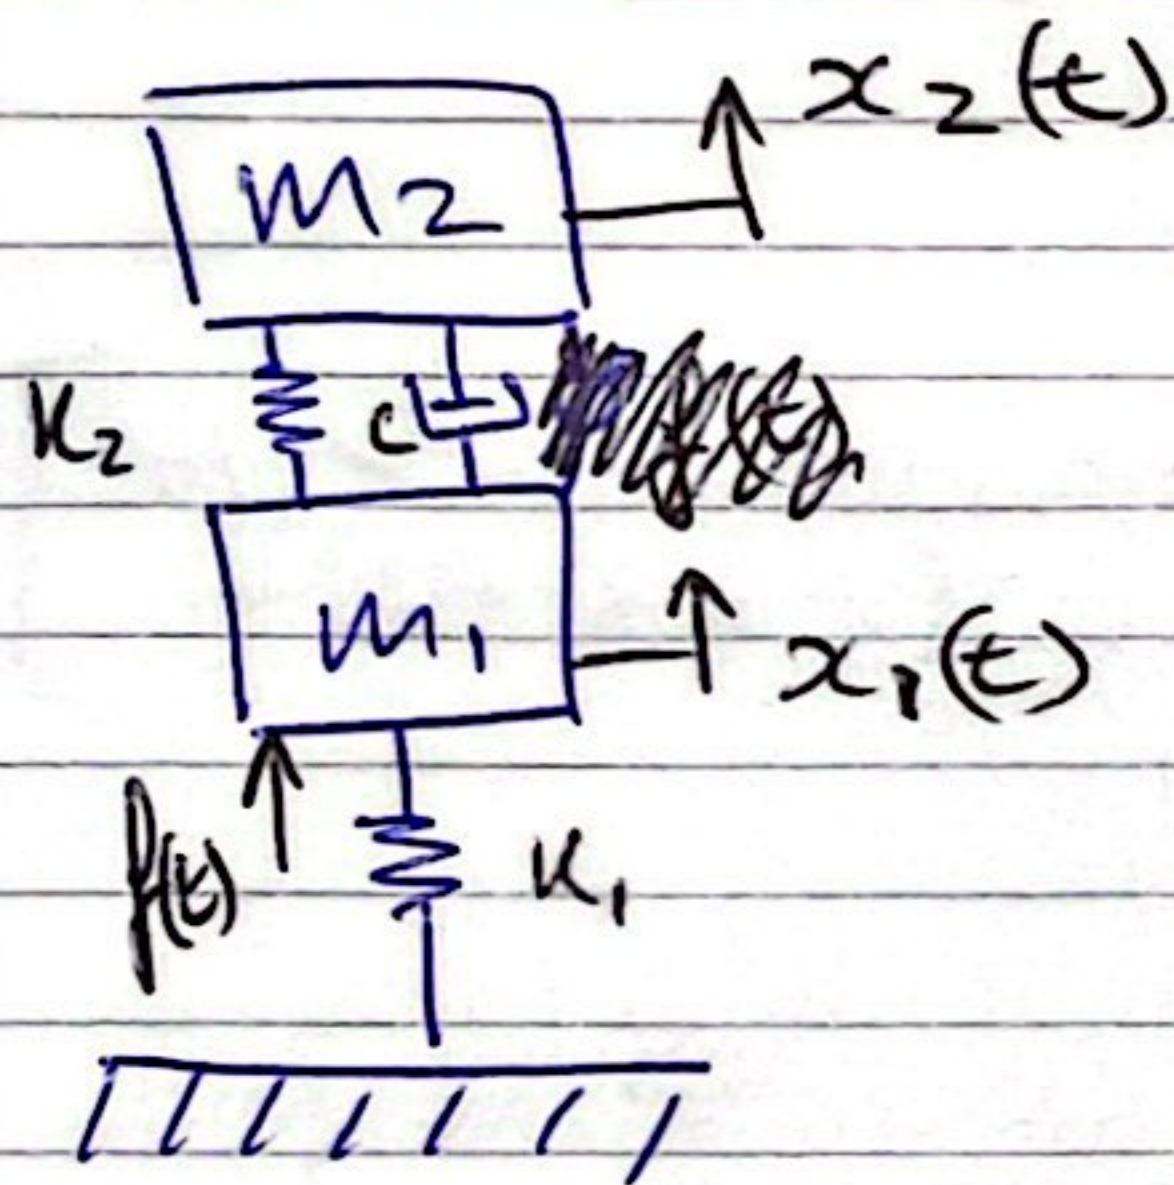 x2(t)
m2
K2
c
m1
x1(t)
f(t)
K1